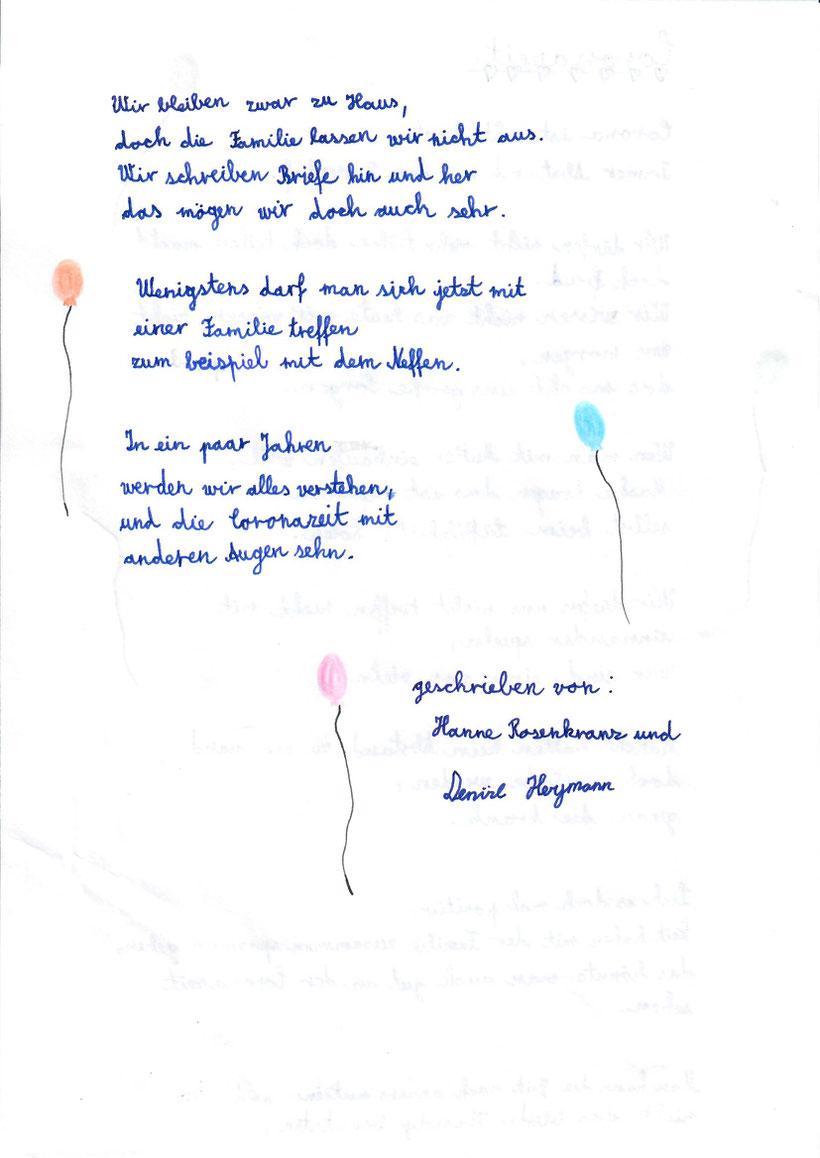 Wir bleiben zwar zu Haus,
doch die Familie lassen wir nicht aus.
Wir schreiben Briefe hin und her
das mögen wir doch auch sehr.
Wenigstens darf man sich jetzt mit
einer Familie treffen
zum beispiel mit dem Neffen.
In ein paar Jahren
werden wir alles verstehen,
und die Coronazeit mit
anderen Augen sehn.
geschrieben von:
Hanne Rosenkranz und
Denise Heymann